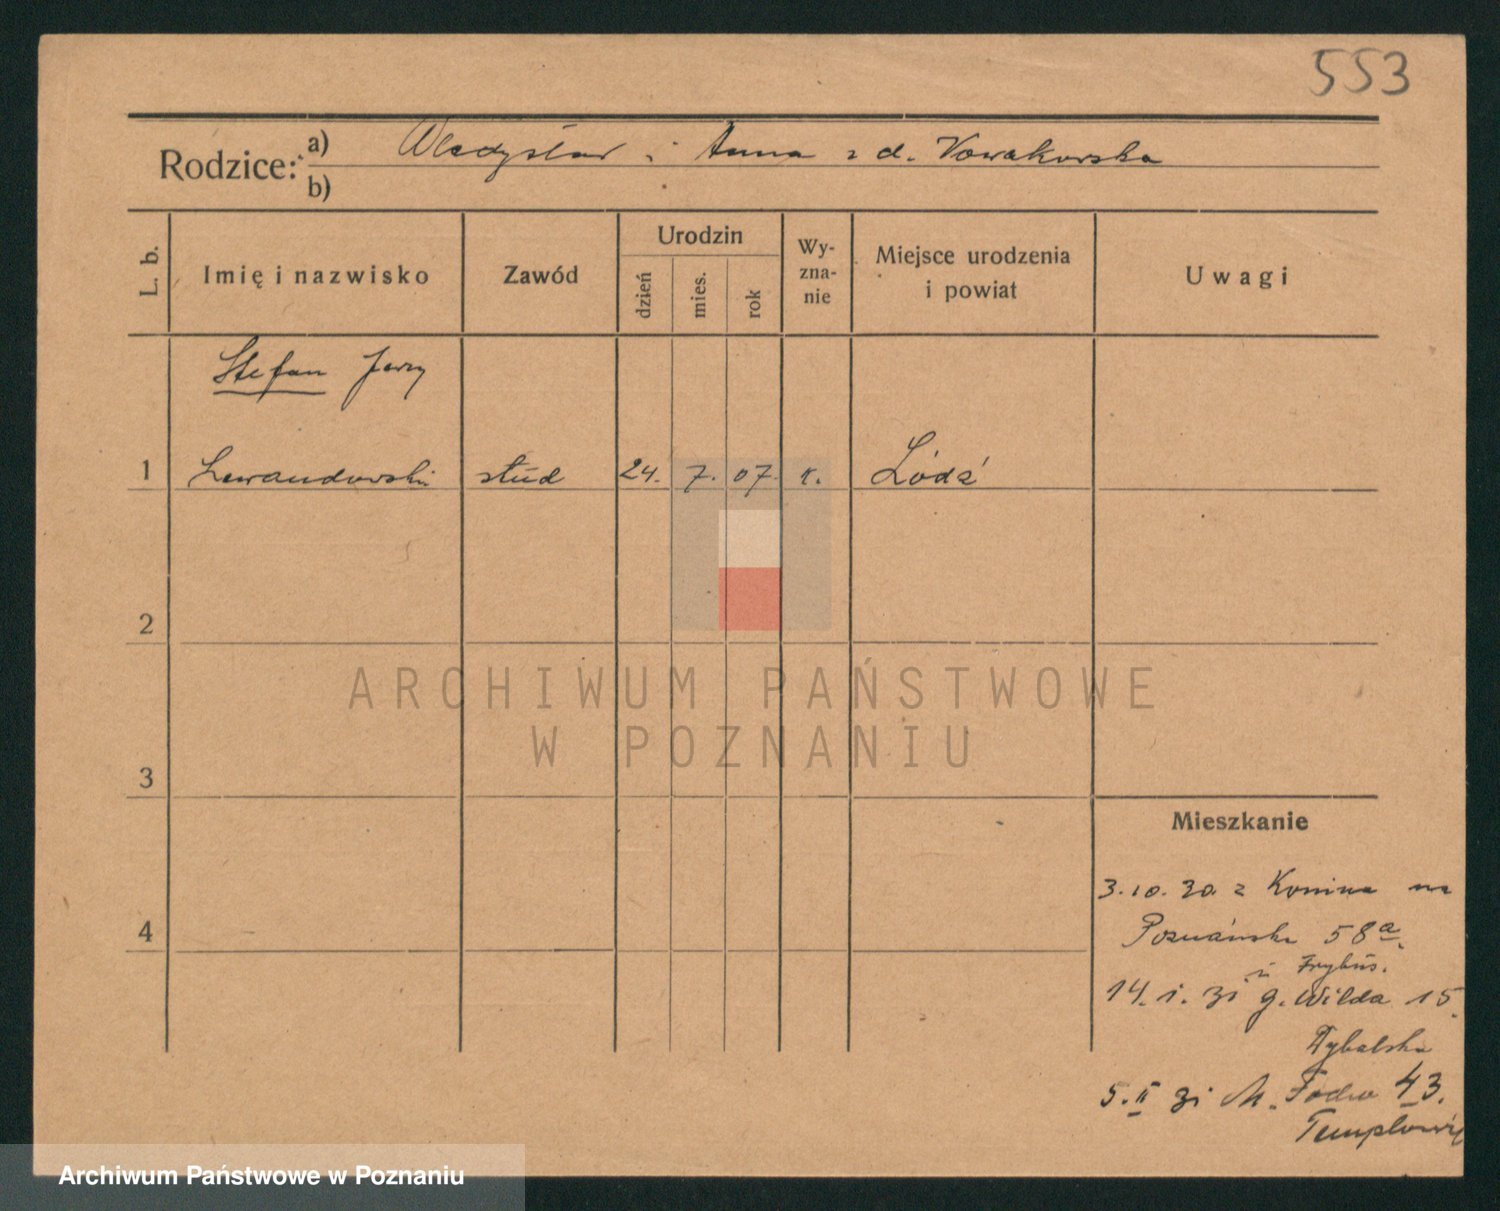 553
Rodzice: a) Władysław i Anna z d. Nowakowska
b)
L. b.
Imię i nazwisko
Zawód
Urodzin
dzień
mies.
rok
Wy-
zna-
nie
Miejsce urodzenia
i powiat
Uwagi
Stefan Jerzy
1 Lewandowski stud 24. 7. 07. k. Łódź
2
ARCHIWUM PAŃSTWOWE
W POZNANIU
3
Mieszkanie
3.10.30 z Konina na
4
Poznańska 58a.
u
14. 1. 31 g. Wilda 15.
5. II 31 M. Focha 43.
Archiwum Państwowe w Poznaniu